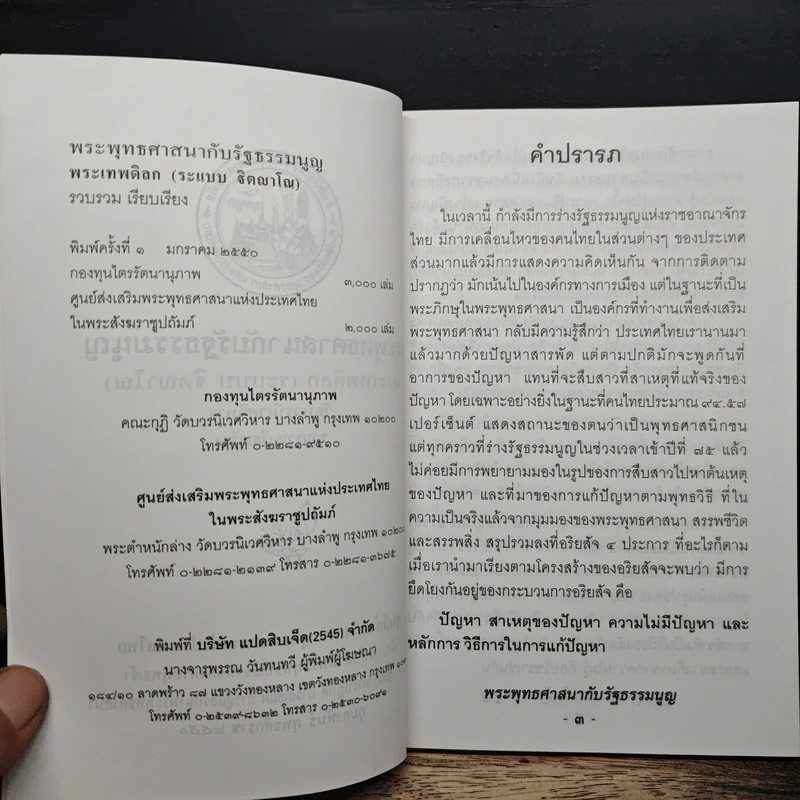 พระพุทธศาสนากับรัฐธรรมนูญ
พระเทพดิลก (ระแบบ ฐิตญาโณ)
รวบรวม เรียบเรียง
พิมพ์ครั้งที่ ๑ มกราคม ๒๕๕๐
กองทุนไตรรัตนานุภาพ ๓,๐๐๐ เล่ม
ศูนย์ส่งเสริมพระพุทธศาสนาแห่งประเทศไทย
ในพระสังฆราชูปถัมภ์ ๒,๐๐๐ เล่ม
กองทุนไตรรัตนานุภาพ
คณะกุฏิ วัดบวรนิเวศวิหาร บางลำพู กรุงเทพ ๑๐๒๐๐
โทรศัพท์ ๐-๒๒๘๑-๙๕๑๐
ศูนย์ส่งเสริมพระพุทธศาสนาแห่งประเทศไทย
ในพระสังฆราชูปถัมภ์
พระตำหนักล่าง วัดบวรนิเวศวิหาร บางลำพู กรุงเทพ ๑๐๒๐๐
โทรศัพท์ ๐-๒๒๘๑-๒๑๓๙ โทรสาร ๐-๒๒๘๑-๓๖๗๕
พิมพ์ที่ บริษัท แปดสิบเจ็ด(2545) จำกัด
นางจารุพรรณ วันทนทวี ผู้พิมพ์ผู้โฆษณา
๑๘๔/๑๐ ลาดพร้าว ๘๗ แขวงวังทองหลาง เขตวังทองหลาง กรุงเทพ
โทรศัพท์ ๐-๒๕๓๙-๘๖๓๒ โทรสาร ๐-๒๕๓๐-๖๐๙๑
คำปรารภ
ในเวลานี้ กำลังมีการร่างรัฐธรรมนูญแห่งราชอาณาจักร
ไทย มีการเคลื่อนไหวของคนไทยในส่วนต่างๆ ของประเทศ
ส่วนมากแล้วมีการแสดงความคิดเห็นกัน จากการติดตาม
ปรากฏว่า มักเน้นไปในองค์กรทางการเมือง แต่ในฐานะที่เป็น
พระภิกษุในพระพุทธศาสนา เป็นองค์กรที่ทำงานเพื่อส่งเสริม
พระพุทธศาสนา กลับมีความรู้สึกว่า ประเทศไทยเรานานมา
แล้วมากด้วยปัญหาสารพัด แต่ตามปกติมักจะพูดกันที่
อาการของปัญหา แทนที่จะสืบสาวที่สาเหตุที่แท้จริงของ
ปัญหา โดยเฉพาะอย่างยิ่งในฐานะที่คนไทยประมาณ ๙๔.๕๗
เปอร์เซ็นต์ แสดงสถานะของตนว่าเป็นพุทธศาสนิกชน
แต่ทุกคราวที่ร่างรัฐธรรมนูญในช่วงเวลาเข้าปีที่ ๗๕ แล้ว
ไม่ค่อยมีการพยายามมองในรูปของการสืบสาวไปหาต้นเหตุ
ของปัญหา และที่มาของการแก้ปัญหาตามพุทธวิธี ที่ใน
ความเป็นจริงแล้วจากมุมมองของพระพุทธศาสนา สรรพชีวิต
และสรรพสิ่ง สรุปรวมลงที่อริยสัจ ๔ ประการ ที่อะไรก็ตาม
เมื่อเรานำมาเรียงตามโครงสร้างของอริยสัจจะพบว่า มีการ
ยึดโยงกันอยู่ของกระบวนการอริยสัจ คือ
ปัญหา สาเหตุของปัญหา ความไม่มีปัญหา และ
หลักการ วิธีการในการแก้ปัญหา
พระพุทธศาสนากับรัฐธรรมนูญ
- ๓ -